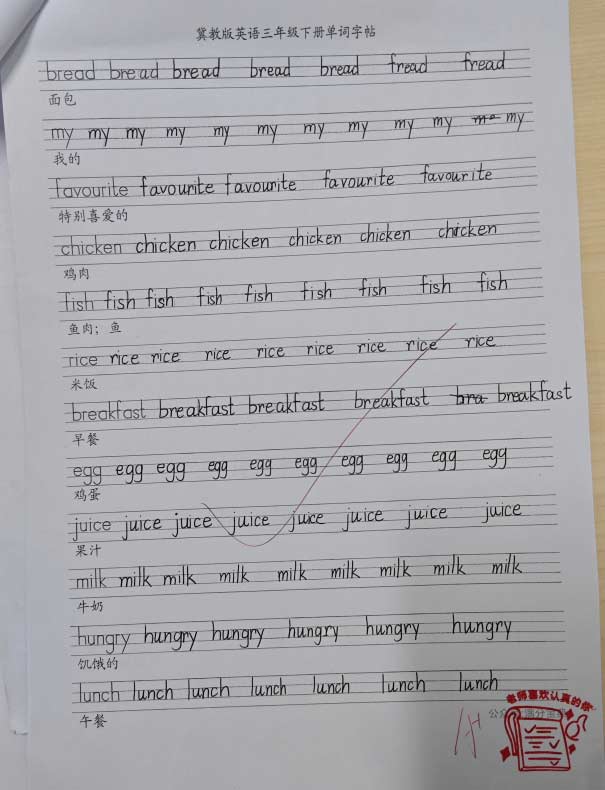 冀教版英语三年级下册单词字帖
bread bread bread bread bread fread fread
面包
my my my my my my my my my my me my
我的
favourite favourite favourite favourite favourite
特别喜爱的
chicken chicken chicken chicken chicken chicken
鸡肉
fish fish fish fish fish fish fish fish fish
鱼肉；鱼
rice rice rice rice rice rice rice rice rice
米饭
breakfast breakfast breakfast breakfast bra breakfast
早餐
egg egg egg egg egg egg egg egg egg egg
鸡蛋
juice juice juice juice juice juice juice juice
果汁
milk milk milk milk milk milk milk milk milk
牛奶
hungry hungry hungry hungry hungry hungry
饥饿的
lunch lunch lunch lunch lunch lunch lunch
午餐
老师喜欢认真的你
公众